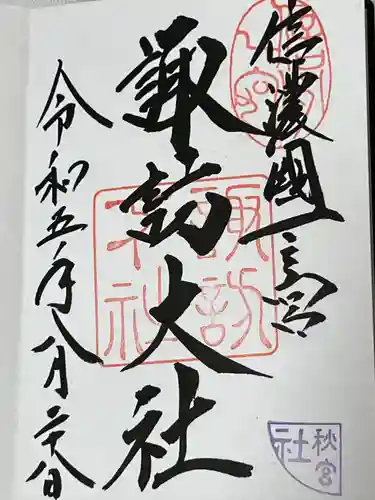 信濃國一之宮
諏訪大社
令和五年八月二十八日
諏訪
大社
秋宮
社